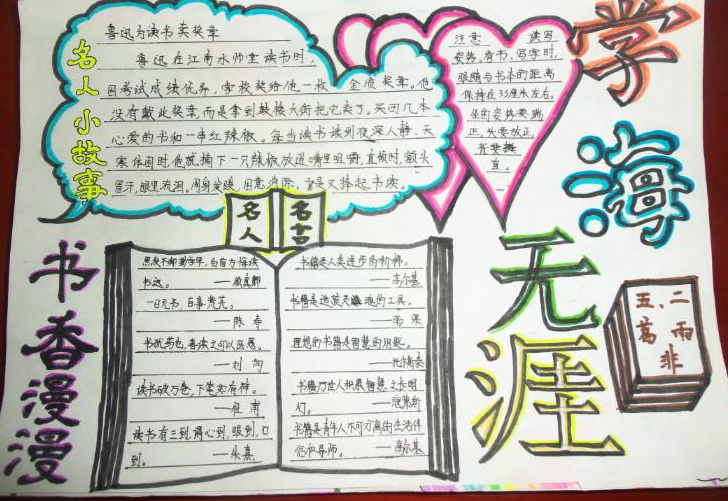 学海无涯
书香漫漫
名人小故事
鲁迅为读书卖奖章
鲁迅在江南水师堂读书时,
因考试成绩优异,学校奖给他一枚 金质奖章。他
没有戴此奖章,而是拿到鼓楼大街把它卖了。买回几本
心爱的书和一串红辣椒。每当读书读到夜深人静、天
寒体困时,他就摘下一只辣椒放进嘴里咀嚼,直辣时,额头
冒汗,眼里流泪。周身发暖,困意消除,于是又捧起书读。
注意 读写
姿势,看书、写字时,
眼睛与书本的距离
保持在33厘米左右。
坐的姿势要端
正,头要放正,
直。
名人
名言
黑发不知勤学早,白首方悔读
书迟。 ——颜真卿
一日无书,百事荒芜。
——陈寿
书犹药也,善读之可以医愚。
——刘向
读书破万卷,下笔如有神。
——杜甫
读书有三到,谓心到,眼到,口
到。 ——朱熹
书籍是人类进步的阶梯。
——高尔基
书籍是造就灵魂的工具。
——雨果
理想的书籍是智慧的钥匙。
——托尔斯泰
灯。
书籍是青年人不可分离的生活伴
侣和导师。 ——高尔基
五、二
葛 雨
非